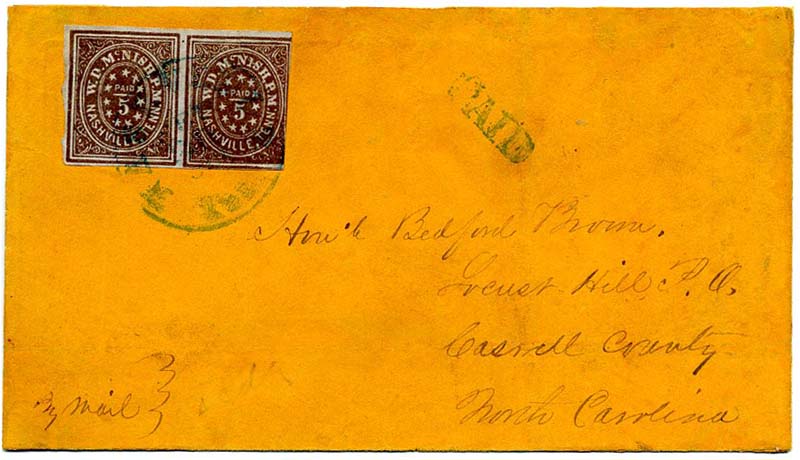 W.D. McNISH, P.M. W.D. McNISH, P.M.
PAID PAID
5 5
NASHVILLE, TENN. NASHVILLE, TENN.
PAID
Hon'le Bedford Brown,
Locust Hill P.O.
Caswell County
North Carolina
By mail